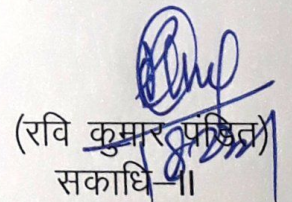 (रवि कुमार पंडित)
सकाधि–II